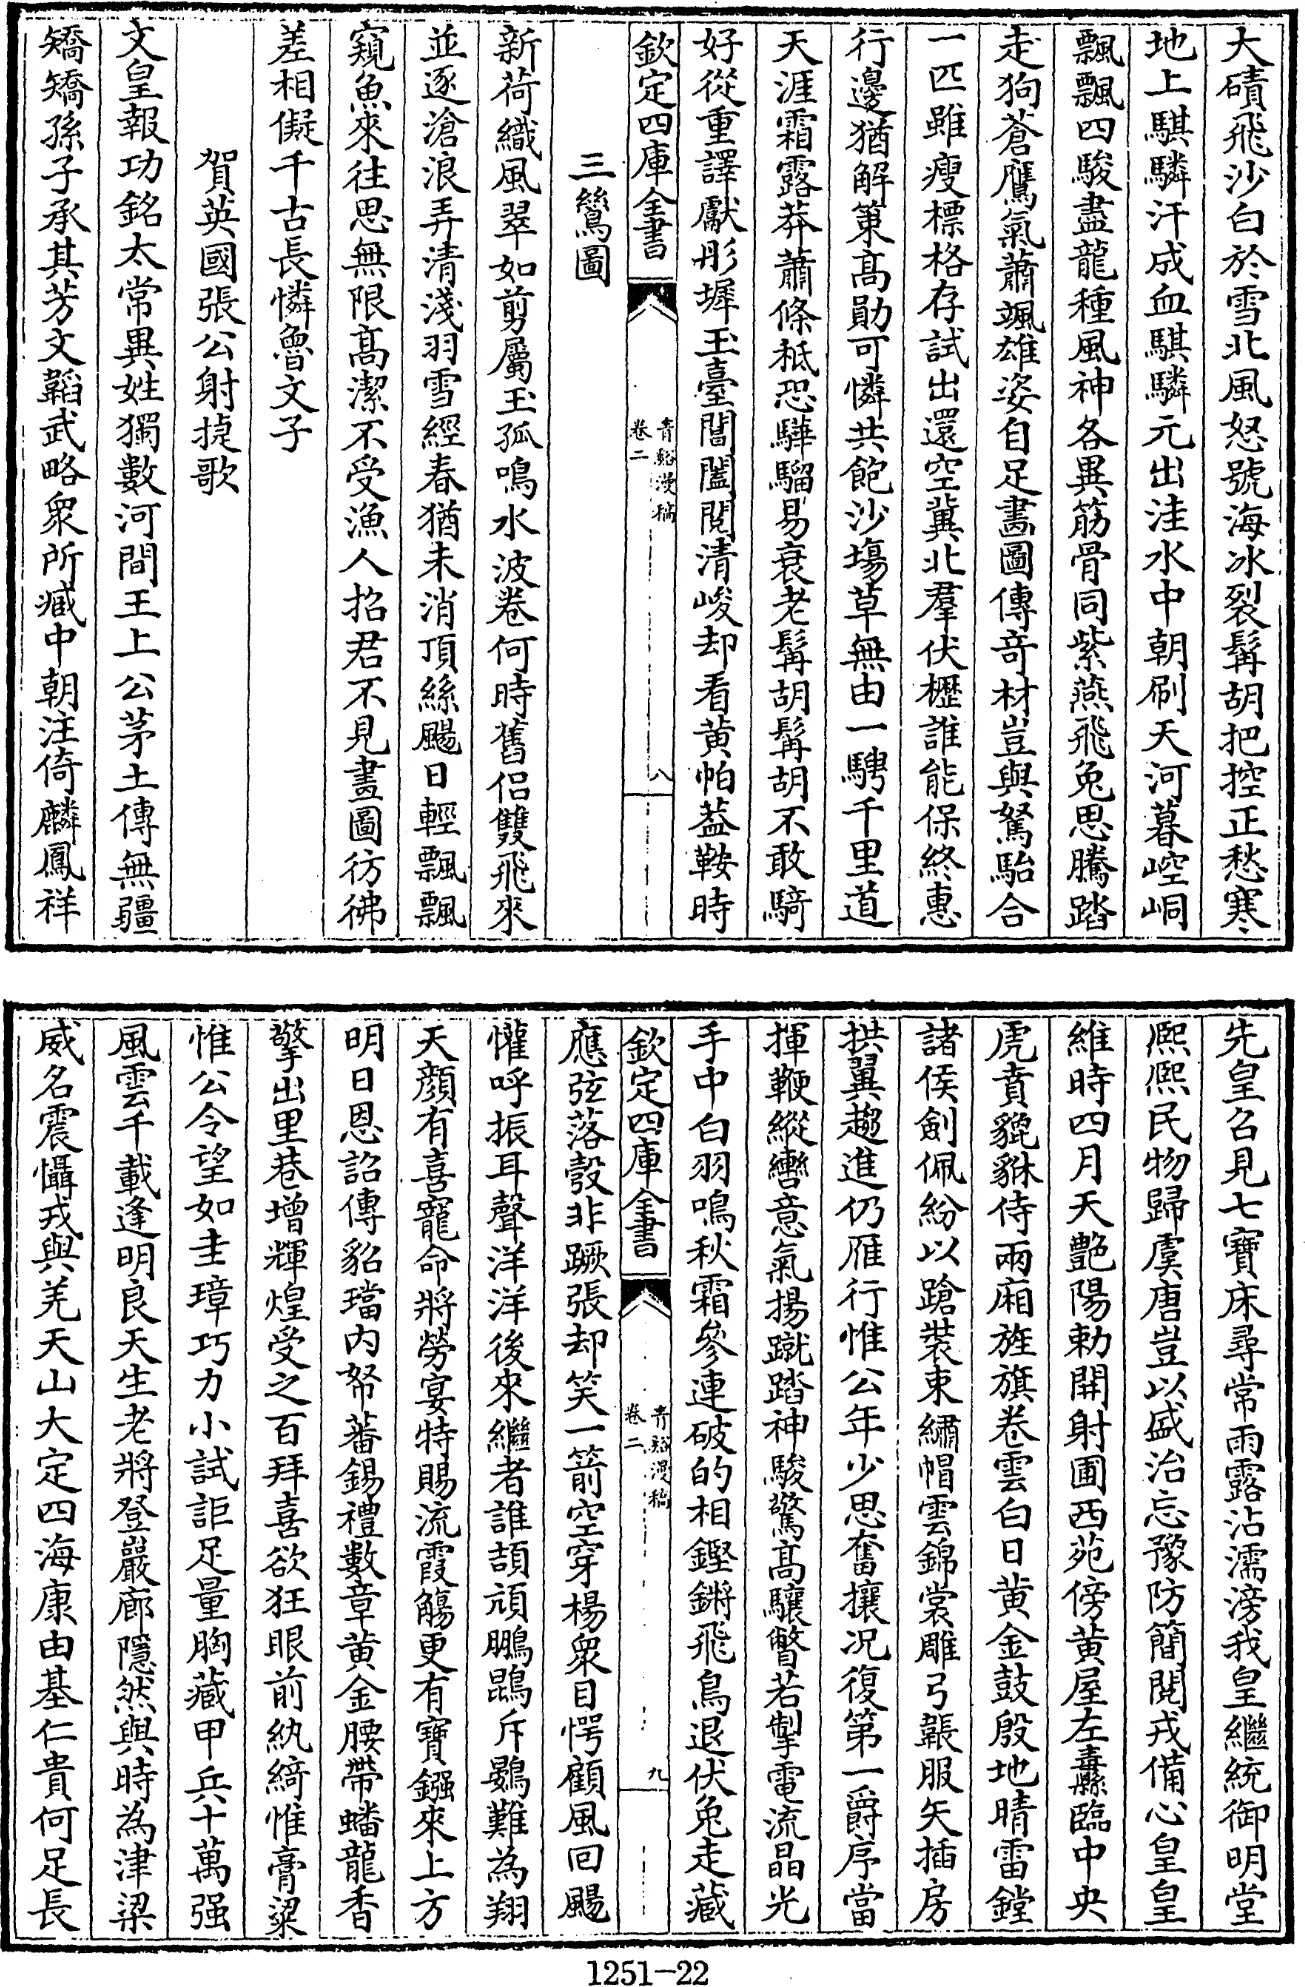 大磧飛沙白於雪北風怒號海冰裂髯胡把控正愁寒
地上騏驎汗成血騏驎元出洼水中朝刷天河暮崆峒
飄飄四駿盡龍種風神各異筋骨同紫燕飛兔思騰踏
走狗蒼鷹氣蕭颯雄姿自足畵圖傳竒材豈與駑駘合
一匹雖瘦標格存試出還空冀北羣伏櫪誰能保終惠
行邊猶解策髙勛可憐共飽沙塲草無由一騁千里道
天涯霜露莽蕭條秪恐驊騮易衰老髯胡髯胡不敢騎
好從重譯獻彤墀玉臺閶闔閱清峻却看黄帕葢鞍時
欽定四庫全書
青谿漫稿
卷二
八
三鷺圖
新荷織風翠如剪屬玉孤鳴水波卷何時舊侣雙飛來
並逐滄浪弄清淺羽雪經春猶未消頂絲颺日輕飄飄
窺魚來往思無限髙潔不受漁人招君不見畫圖彷彿
差相儗千古長憐魯文子
賀英國張公射㨗歌
文皇報功銘太常異姓獨數河間王上公茅土傳無疆
矯矯孫子承其芳文韜武略衆所臧中朝注倚麟鳳祥
先皇召見七寶床尋常雨露沾濡滂我皇繼統御明堂
熈熈民物歸虞唐豈以盛治忘豫防簡閱戎備心皇皇
維時四月天艶陽勅開射圃西苑傍黄屋左纛臨中央
虎賁貔貅侍兩廂旌旗卷雲白日黄金鼓殷地晴雷鏜
諸侯劍佩紛以蹌裝束繡帽雲錦裳雕弓韔服矢插房
拱翼趨進仍雁行惟公年少思奮攘况復第一爵序當
揮鞭縱轡意氣揚蹴踏神駿驚髙驤瞥若掣電流晶光
手中白羽鳴秋霜參連破的相鏗鏘飛鳥退伏兔走藏
欽定四庫全書
青谿漫稿
卷二
九
應弦落彀非蹶張却笑一箭空穿楊衆目愕顧風回颺
懽呼振耳聲洋洋後來繼者誰頡頏鵬鵾斥鷃難為翔
天顔有喜寵命將勞宴特賜流霞觴更有寶鏹來上方
明日恩詔傳貂璫内帑蕃錫禮數章黄金腰帶蟠龍香
擎出里巷增輝煌受之百拜喜欲狂眼前紈綺惟膏粱
惟公令望如圭璋巧力小試詎足量胸藏甲兵十萬强
風雲千載逢明良天生老將登巖廊隱然與時為津梁
威名震懾戎與羌天山大定四海康由基仁貴何足長
1251-22